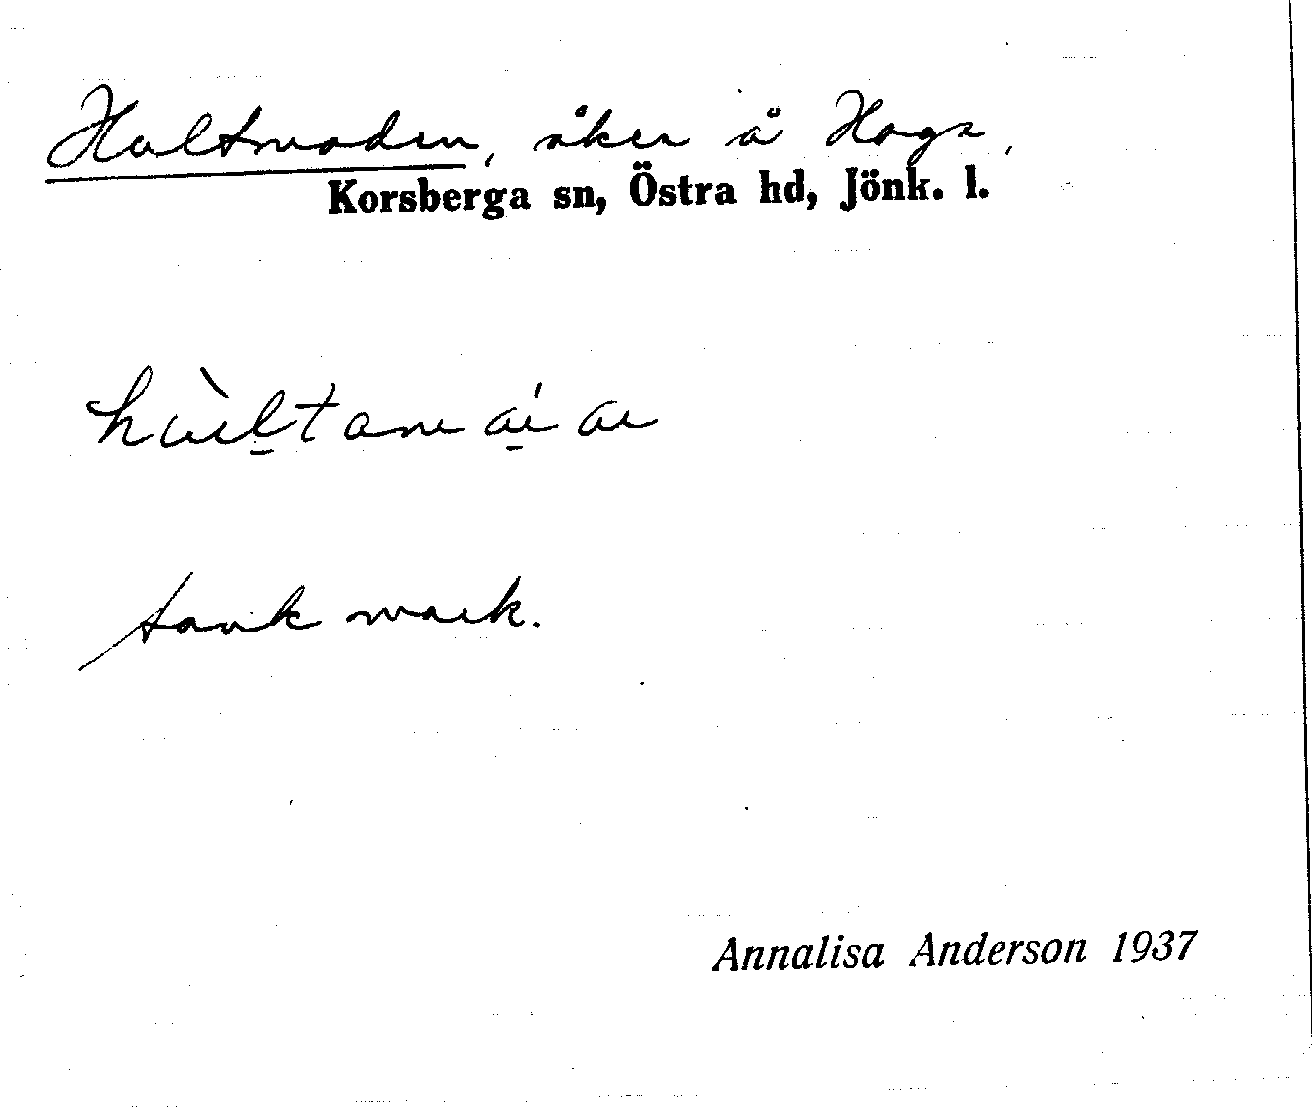 Hultmaden, åker å Haga,
Korsberga sn, Östra hd, Jönk. l.
sank mark.
Annalisa Anderson 1937